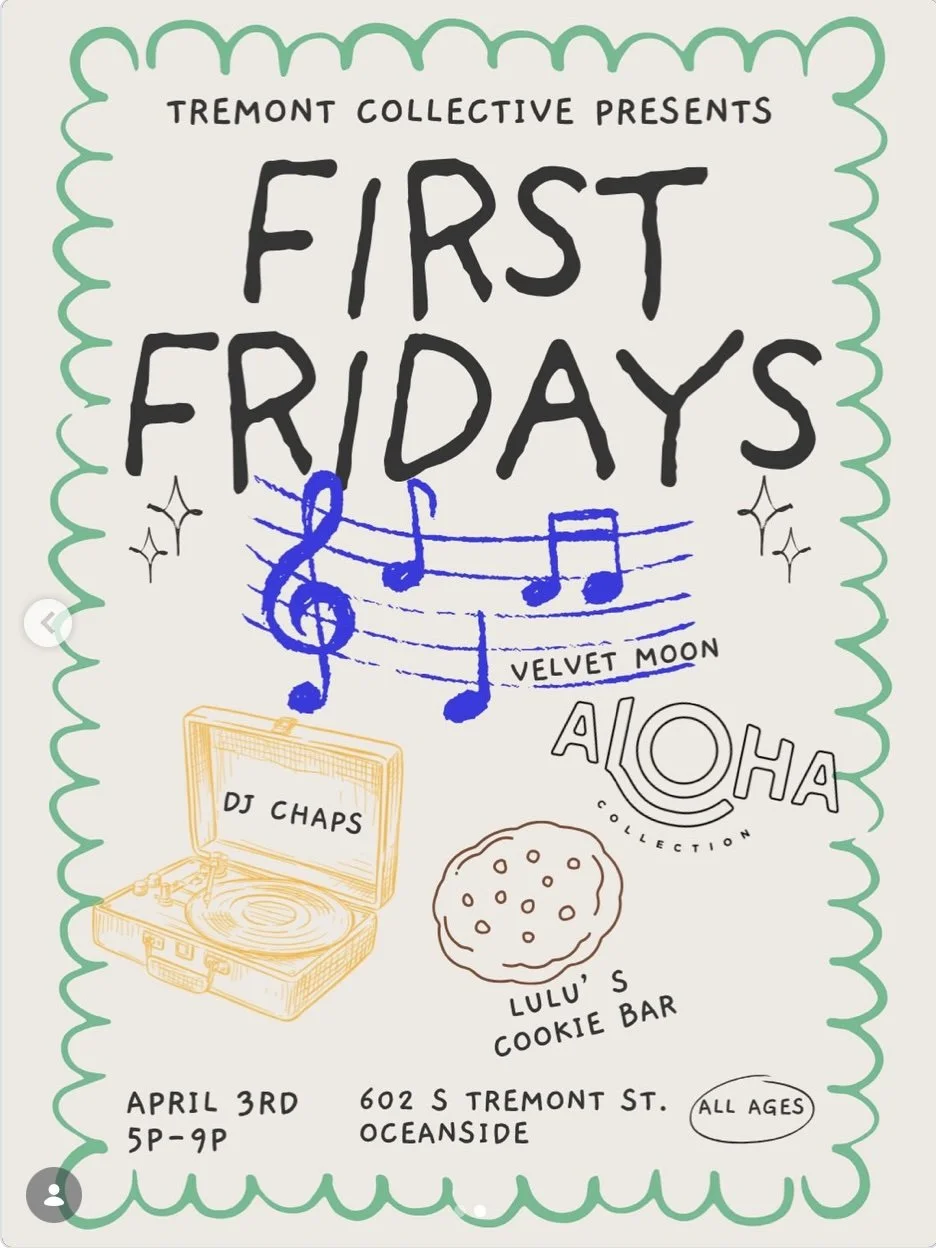 TREMONT COLLECTIVE PRESENTS
FIRST
FRIDAYS
VELVET MOON
ALOHA
COLLECTION
DJ CHAPS
LULU' S
COOKIE BAR
APRIL 3RD
5P-9P
602 S TREMONT ST.
OCEANSIDE
ALL AGES